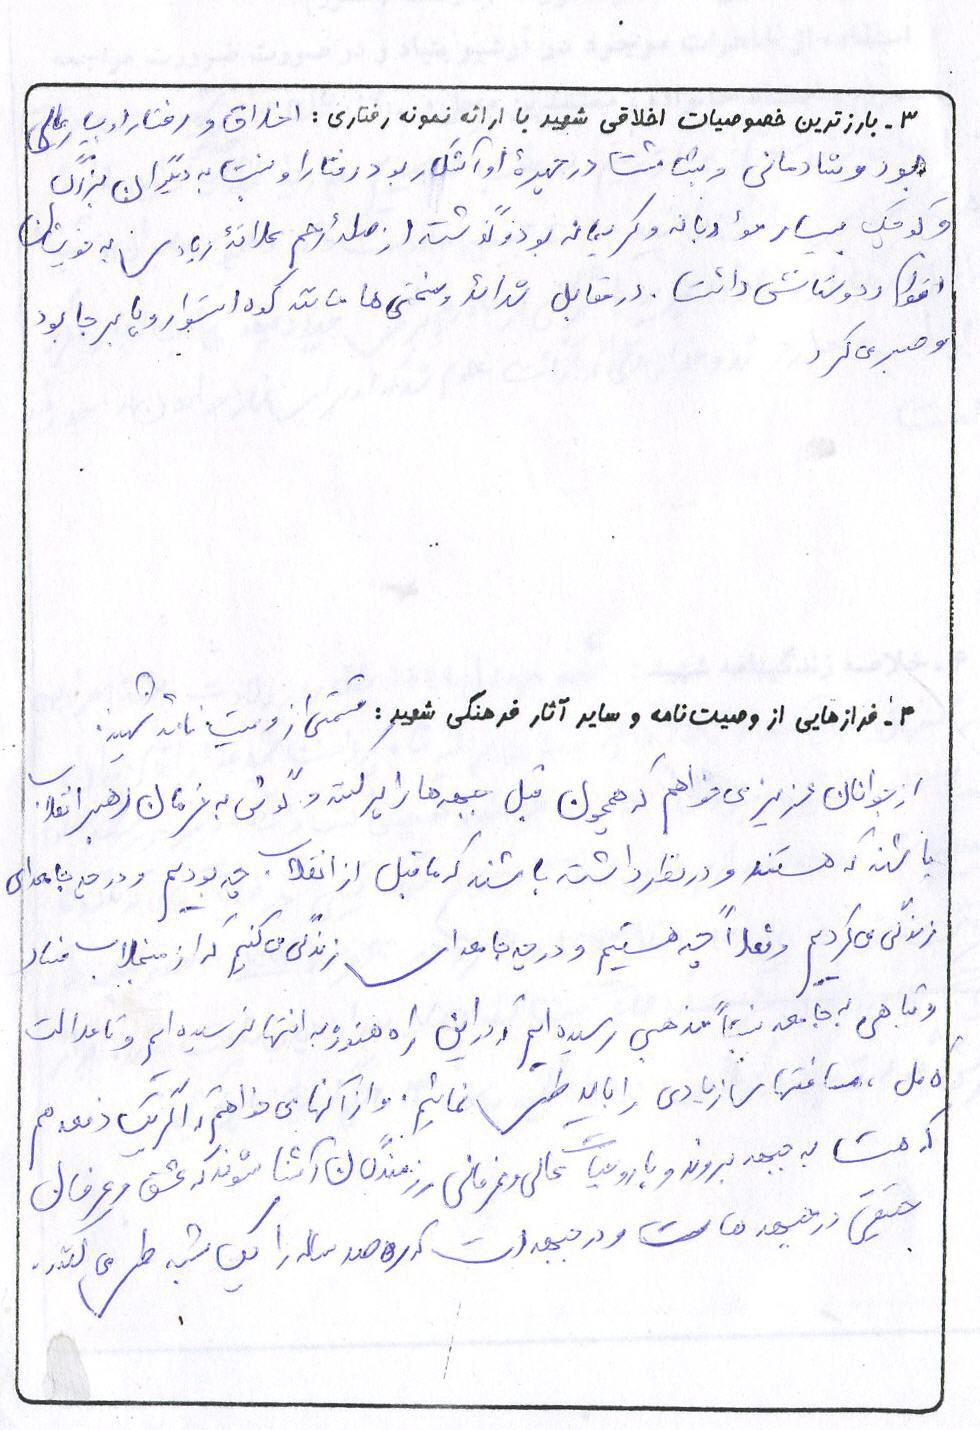 ۳- بارزترین خصوصیات اخلاقی شهید با ارائه نمونه رفتاری: اخلاق و رفتار او بسیار عالی
بود و شادمانی و بشاشت در چهرهٔ او آشکار بود رفتار او نسبت به دیگران بزرگ
و کوچک بسیار مؤدبانه و کریمانه بود و گذشته از صلهٔ ارحم علاقهٔ زیادی به خویشان
اقوام و دوستانش داشت. در مقابل شدائد و سختی‌ها مانند کوه استوار و پابرجا بود
و صبر می‌کرد
۴- فرازهایی از وصیت‌نامه و سایر آثار فرهنگی شهید: قسمتی از وصیت نامه شهید:
از جوانان عزیز می‌خواهم که همچون قبل جبهه‌ها را پر کنند و گوش به فرمان رهبر انقلاب
باشند که هستند و در نظر داشته باشند که ما قبل از انقلاب چه بودیم و در چه جامعه‌ای
زندگی می‌کردیم و فعلاً چه هستیم و در چه جامعه‌ای زندگی می‌کنیم که از منجلاب فساد
و تباهی به جامعه نسبتاً مذهبی رسیده‌ایم و در این راه هنوز به انتها نرسیده‌ایم و تا عدالت
کامل، مسافتهای زیادی را باید طی نمائیم. و از آنها می‌خواهم که اگر یک دفعه هم
که هست به جبهه بروند و با روحیات عالی و عرفانی رزمندگان آشنا شوند که عشق و عرفان
حقیقی در جبهه هاست و در جبهه است که ره صد ساله را یک شبه طی می‌کنند.